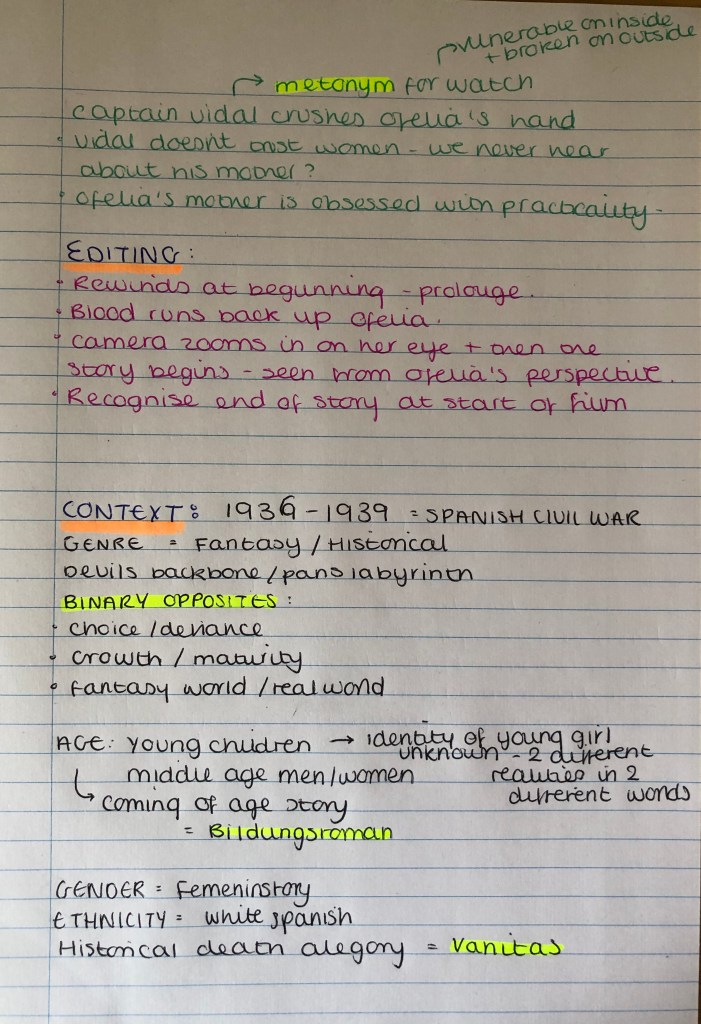 vunerable on inside
+ broken on outside
metonym for watch
captain vidal crushes ofelia's hand
• vidal doesn't trust women - we never hear
about his mother?
• ofelia's mother is obsessed with practicality -
EDITING:
• Rewinds at begunning - prolouge.
• Blood runs back up ofelia.
• camera zooms in on her eye + then the
story begins - seen from ofelia's perspective.
• Recognise end of story at start of film
CONTEXT: 1936 - 1939 = SPANISH CIVIL WAR
GENRE = Fantasy / Historical
Devils backbone / pans labyrinth
BINARY OPPOSITES:
• choice / deviance
• Growth / maturity
• fantasy world / real world
AGE: young children → identity of young girl
unknown - 2 different
middle age men/women realities in 2
different worlds
↳ coming of age story
= Bildungsroman
GENDER = Femeninstory
ETHNICITY = white spanish
Historical death alegory = Vanitas